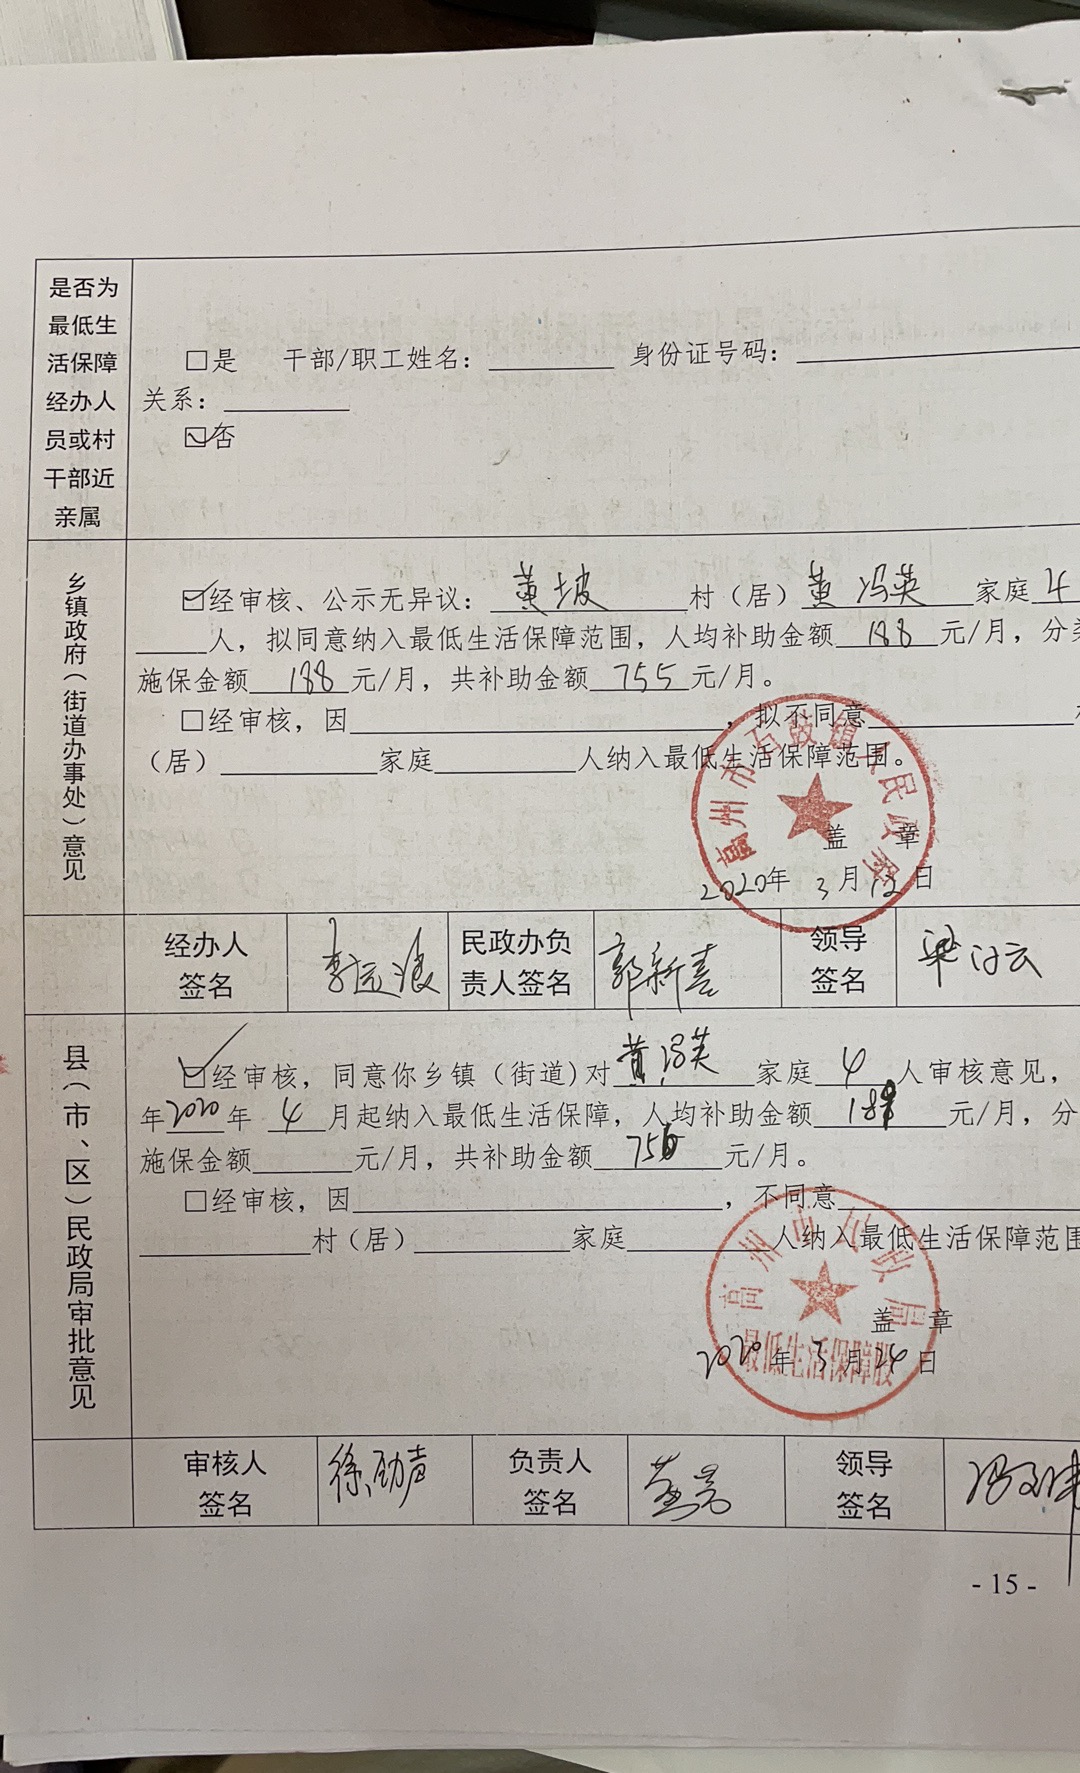 是否为
最低生
活保障
经办人
员或村
干部近
亲属
□是 干部/职工姓名：________ 身份证号码：________
关系：________
☑否
乡镇政府（街道办事处）意见
☑经审核、公示无异议：黄坡村（居）黄冯英家庭4
____人，拟同意纳入最低生活保障范围，人均补助金额188元/月，分类
施保金额188元/月，共补助金额755元/月。
□经审核，因________，拟不同意________
（居）________家庭________人纳入最低生活保障范围。
高州市石鼓镇人民政府
盖 章
2020年3月12日
经办人
签名
李远浪
民政办负
责人签名
郭新喜
领导
签名
梁
云
县（市、区）民政局审批意见
☑经审核，同意你乡镇（街道）对黄冯英家庭4人审核意见，
年2020年4月起纳入最低生活保障，人均补助金额元/月，分
施保金额____元/月，共补助金额元/月。
□经审核，因________，不同意________
________村（居）________家庭________人纳入最低生活保障范围
高州市民政局
最低生活保障股
盖 章
2020年3月24日
审核人
签名
徐劲声
负责人
签名
领导
签名
冯
- 15 -